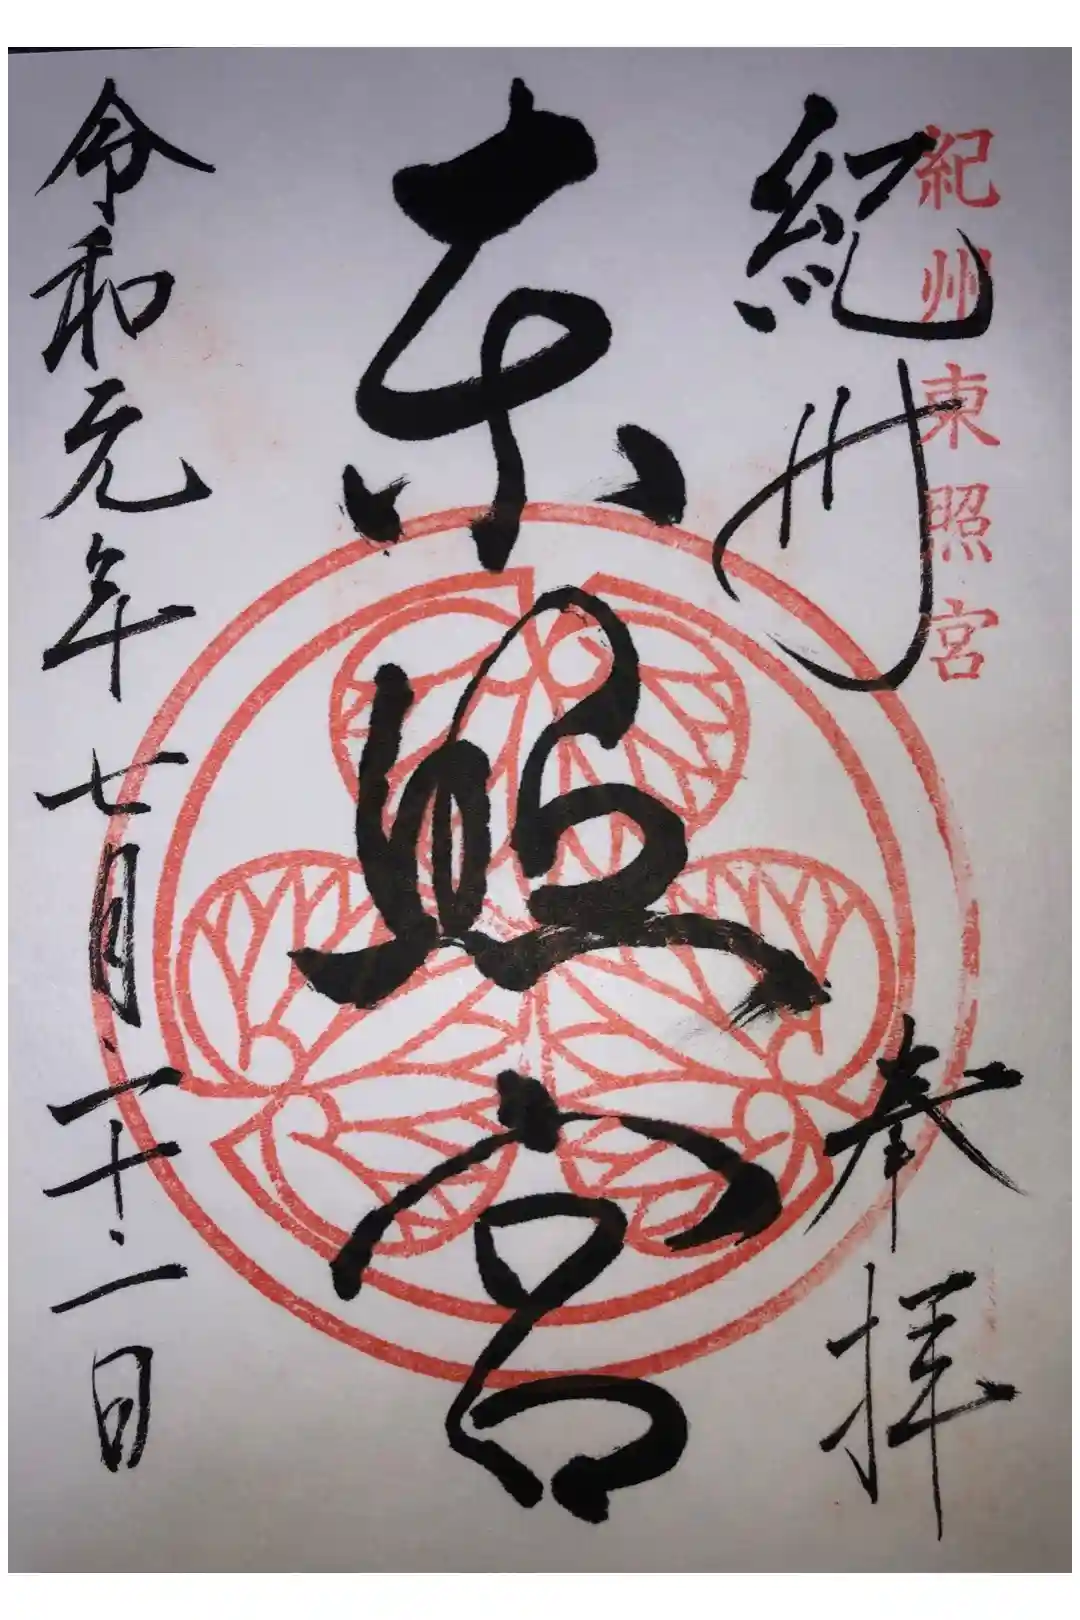 紀州東照宮
紀州
奉拝
東照宮
令和元年七月二十一日